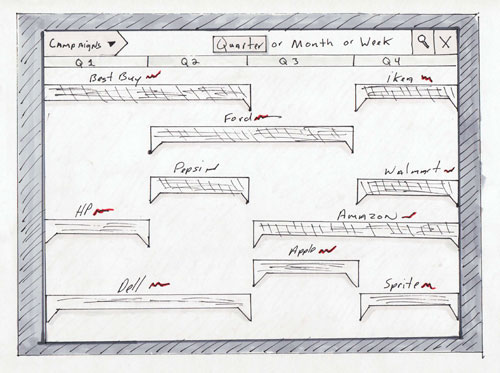 Campaigns Quarter or Month or Week X
Q1 Q2 Q3 Q4
Best Buy ikea
Ford
Pepsi Walmart
HP Amazon
Apple
Dell Sprite